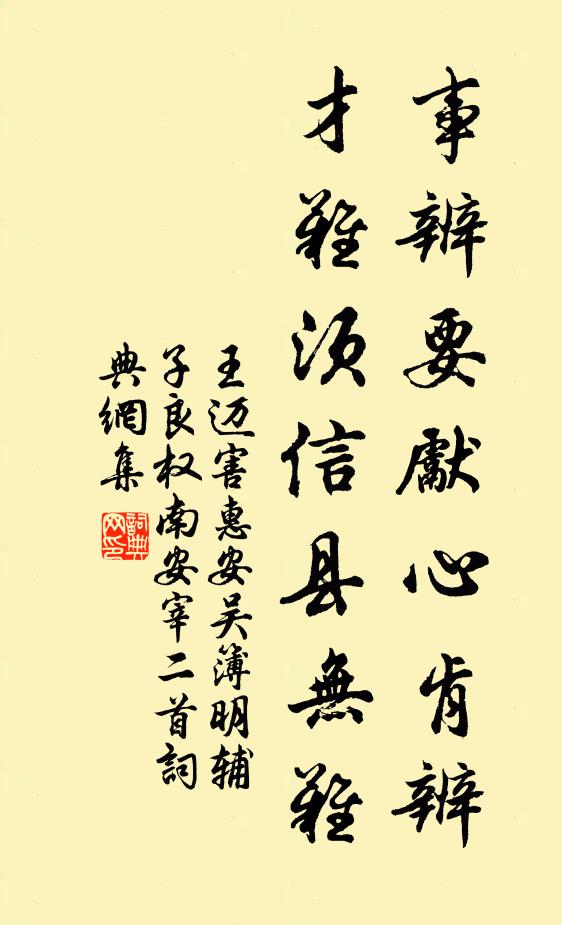 事辨要獻心肯辨
才難须信县無難
王迈害惠安吴簿明辅
子良权南安宰二首詞
典網集
詞典
网印